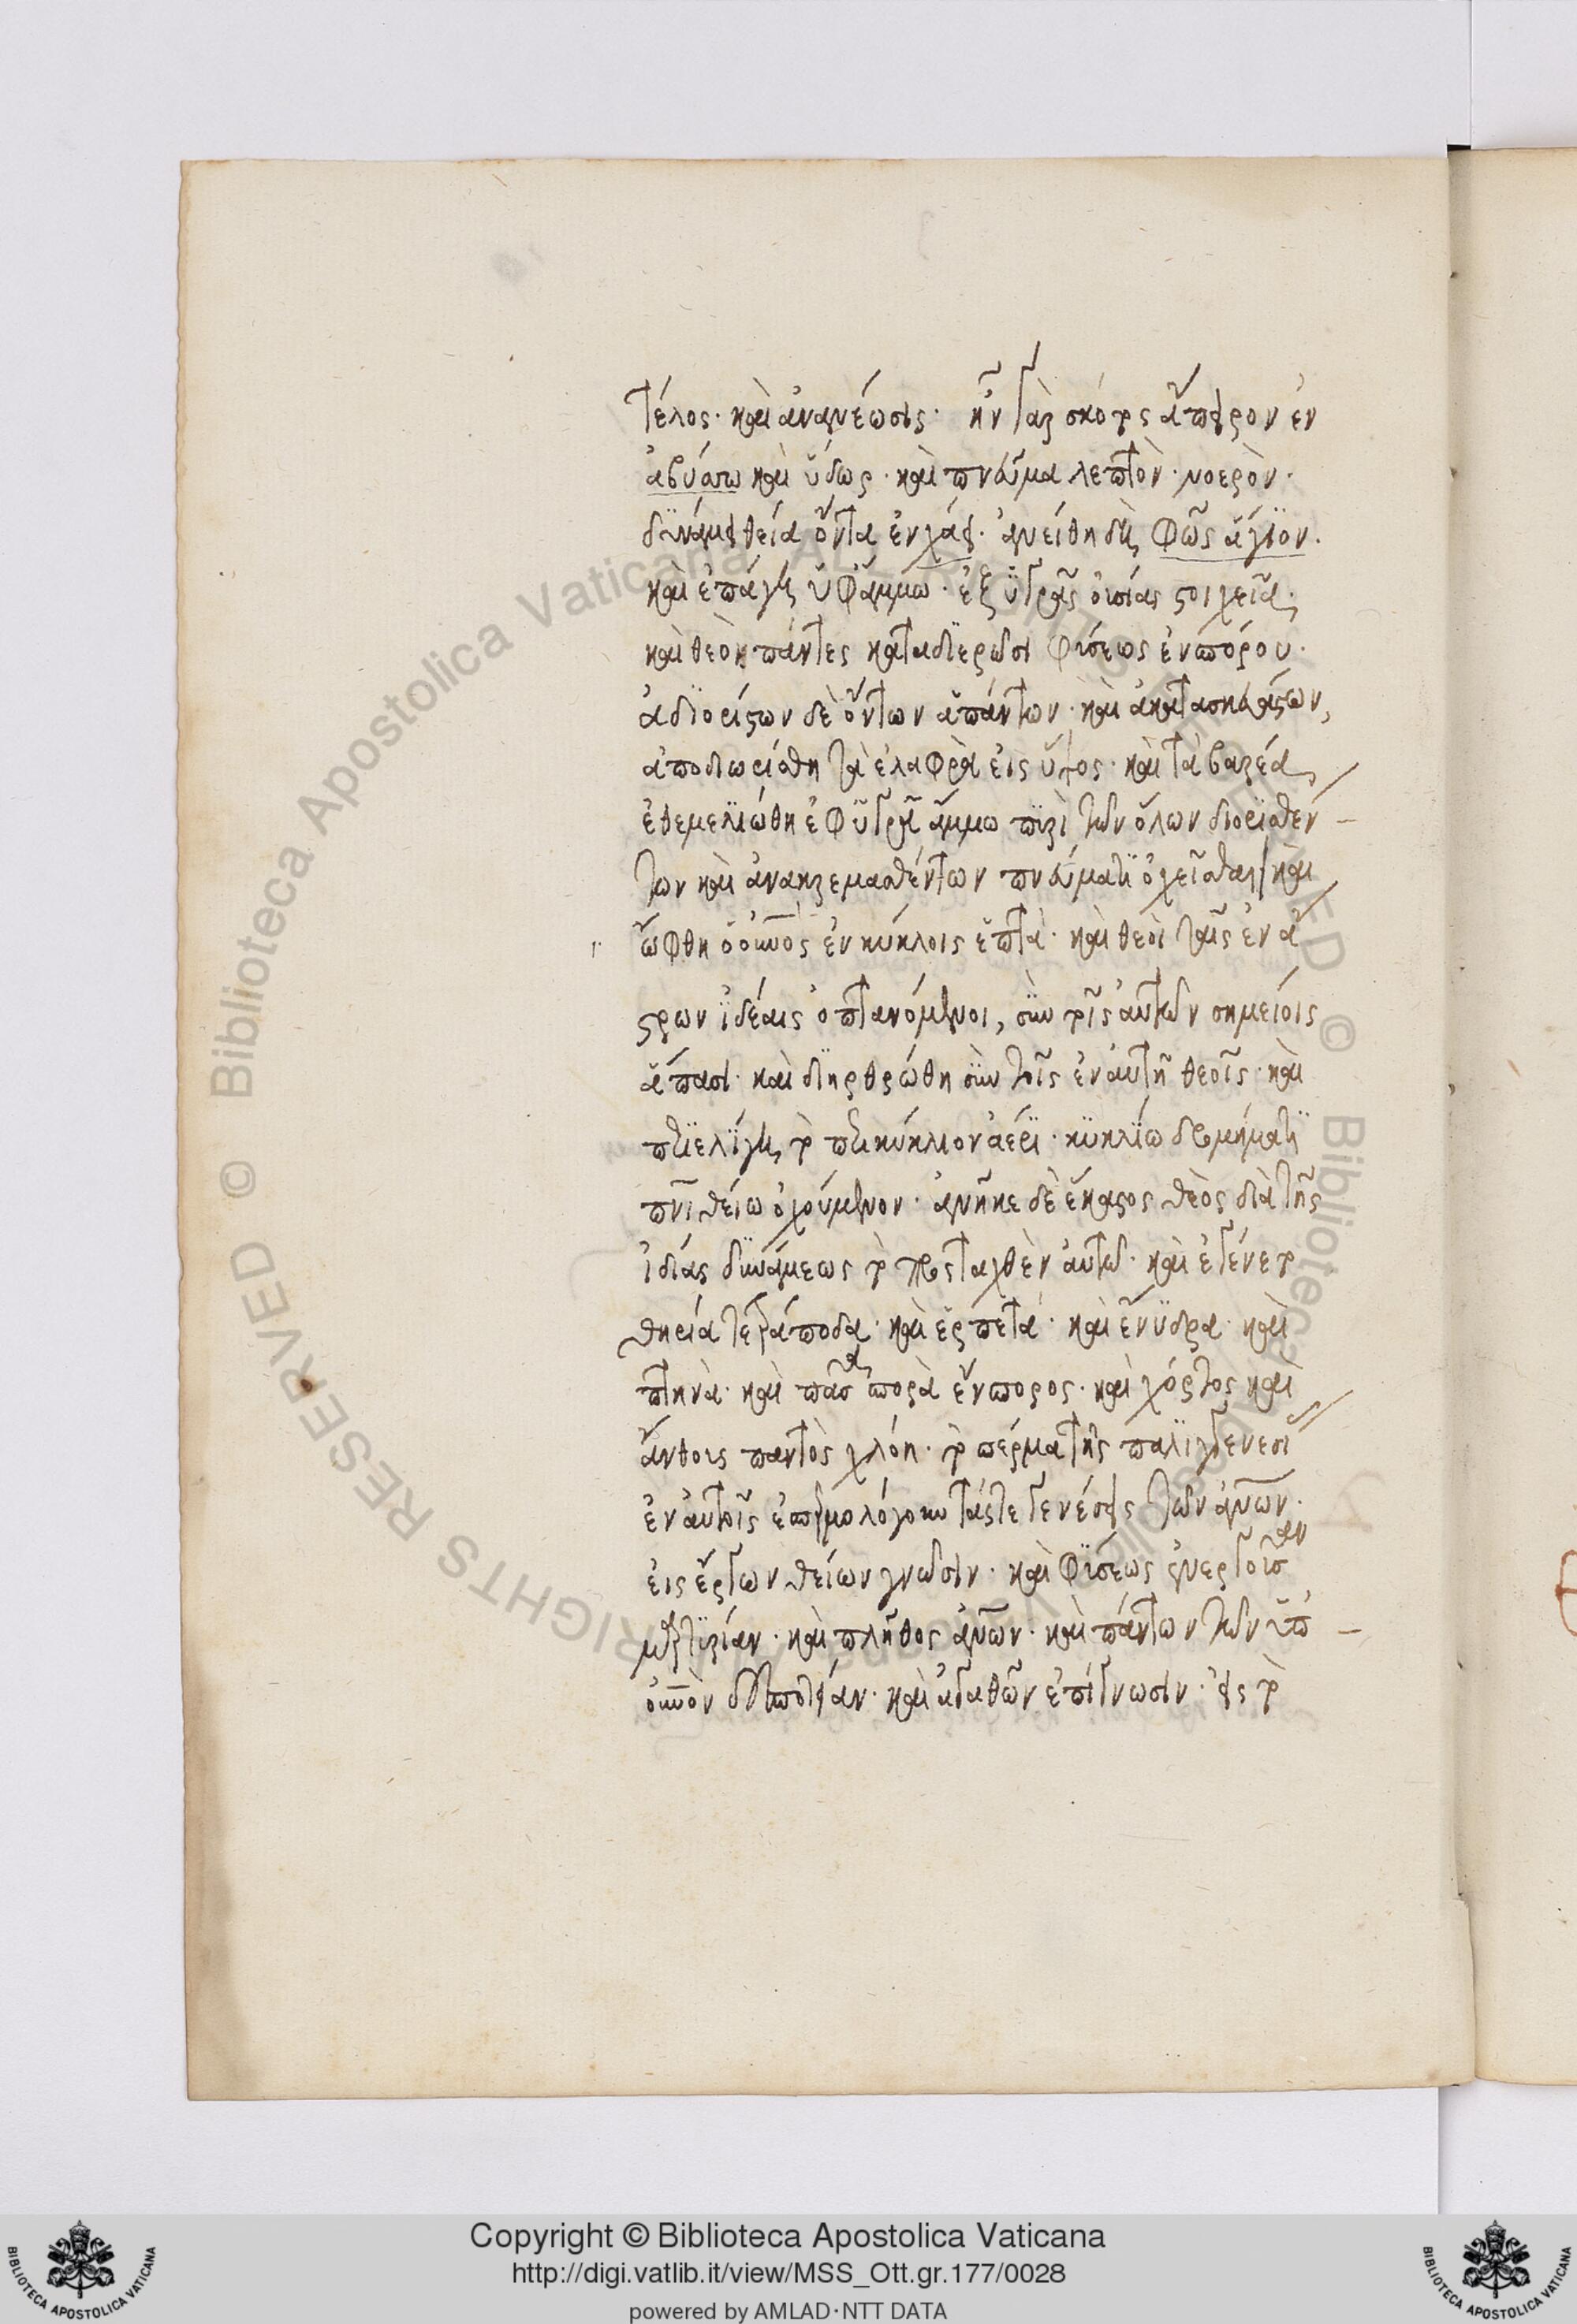 τέλος· καὶ ἀνανέωσις· ἦν γὰρ σκότος ἄπειρον ἐν
ἀβύσσω καὶ ὕδωρ· καὶ πνεῦμα λεπτὸν· νοερὸν·
δϋνάμει θεία ὄντα ἐν χάει· ἀνείθη δὴ φῶς ἅγϊον.
καὶ ἐπάγη ὑφάμμω· ἐξ ὑγρᾶς οὐσίας στοιχεῖα·
καὶ θεὸι πάντες καταδϊερῶσι φύσεως ἐνσπόρου·
ἀδϊορίστων δὲ ὄντων ἁπάντων· καὶ ἀκατασκευάστων,
ἀποδιωρίσθη τὰ ἐλαφρὰ εἰς ὕψος· καὶ τὰ βαρέα
ἐθεμελϊώθη ἐφ ὑγρᾶ ἅμμω πϋρὶ τῶν ὅλων διορϊσθέν
των καὶ ἀνακρεμασθέντων πνεύματϊ ὀχεῖσθαι/ καὶ
ὤφθη ὁ οὐνὸς ἐν κύκλοις ἑπτὰ· καὶ θεοὶ ταῖς ἐν ἄ
στρων ἰδέαις ὀπτανόμενοι, σὺν τοῖς αὐτῶν σημείοις
ἅπασι· καὶ δϊηρθρώθη σὺν τοῖς ἐν αὐτῆ θεοῖς· καὶ
περϊελϊγη τὸ περικύκλιον ἀέρϊ· κϋκλϊω δρομήματϊ
πνϊ θείω ὀχούμενον· ἀνῆκε δὲ ἕκαστος θεὸς διὰ τῆς
ἰδίας δϋνάμεως τὸ προσταχθὲν αὐτῶ· καὶ ἐγένετο
θηρία τετράποδα· καὶ ἑρπετὰ· καὶ ἔνϋδρα· καὶ
πτηνὰ· καὶ πᾶσα σπορὰ ἔνσπορος· καὶ χόρτος καὶ
ἄνθους παντὸς χλόη· τὸ σπέρμα τῆς παλϊγγενεσί
ἐν αὐτοῖς ἐσπερμολόγουν τάς τε γενέσεις τῶν ἀνων·
εἰς ἔργων θείων γνῶσιν· καὶ φύσεως ἐνεργοῦσαν
μαρτϋρίαν· καὶ πλῆθος ἀνων· καὶ πάντων τῶν ὑπ
οὐνὸν δεσποτείαν· καὶ ἀγαθῶν ἐπίγνωσιν· εἰς τὸ
Copyright © Biblioteca Apostolica Vaticana
http://digi.vatlib.it/view/MSS_Ott.gr.177/0028
powered by AMLAD·NTT DATA